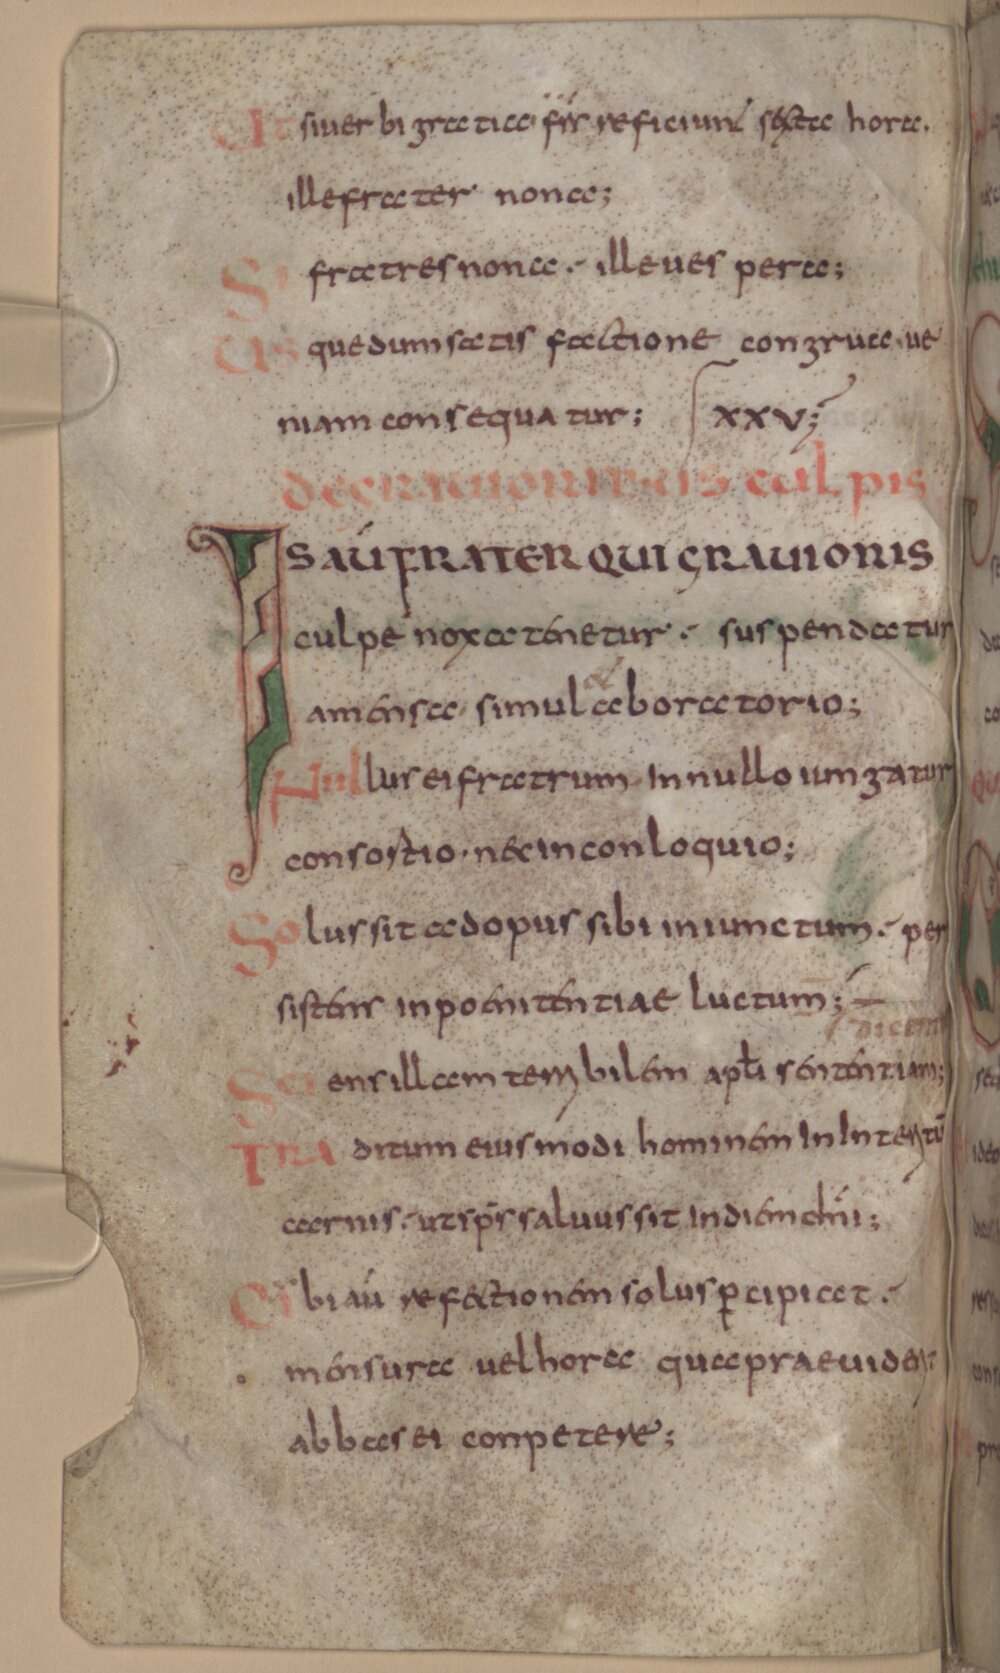 Ut siuerbi gratia· frr̄ reficiunt sexta hora.
ille frater nona;
Si fratres nona·- ille uespera;
Usque dum satis factione congrua· ue
niam consequatur; xxv;
de grauioribus culpis
Is aū frater qui grauioris
culpe noxa tenetur·- suspendatur
a mensa· simul ab oratorio;
Nullus ei fratrum in nullo iungatur
consortio· nec in conloquio;
Solus sit ad opus sibi iniunctum·- per
sistens in poenitentiae luctum;
Sciens illam terribilem apl̄i sententiam;
dicentis
Traditum eiusmodi hominem in interitū
carnis·- ut sp̄s saluus sit in diem dn̄i;
Cibi aū refectionem solus p̄cipicat·-
mensura uel hora qua praeuiderit
abbas ei conpetere;